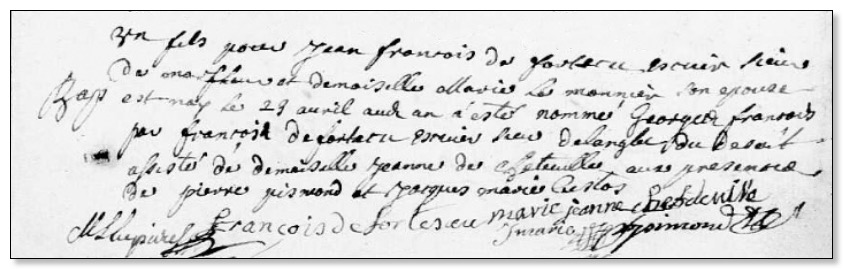 Un fils pour Jean francois de fortescu escuier sieur
de et demoiselle Marie le monnier son epouse
Bap
est nay le 29 avril aud an a esté nommé George francois
par francois de fortescu escuier sieur delanglée du desert
assisté de demoiselle Jeanne de aux presences
de pierre et Jacques marie
francois de fortescu marie jeanne chefdeville
J marie